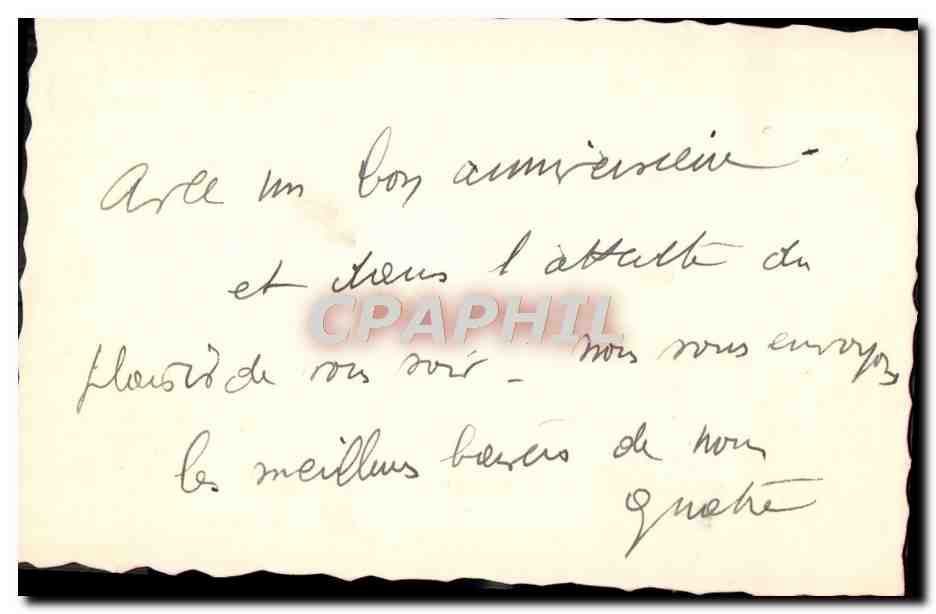 Avec un bon anniversaire -
et dans l'attente du
CPAPHIL
plaisir de vous voir - nous vous envoyons
les meilleurs baisers de nous
quatre